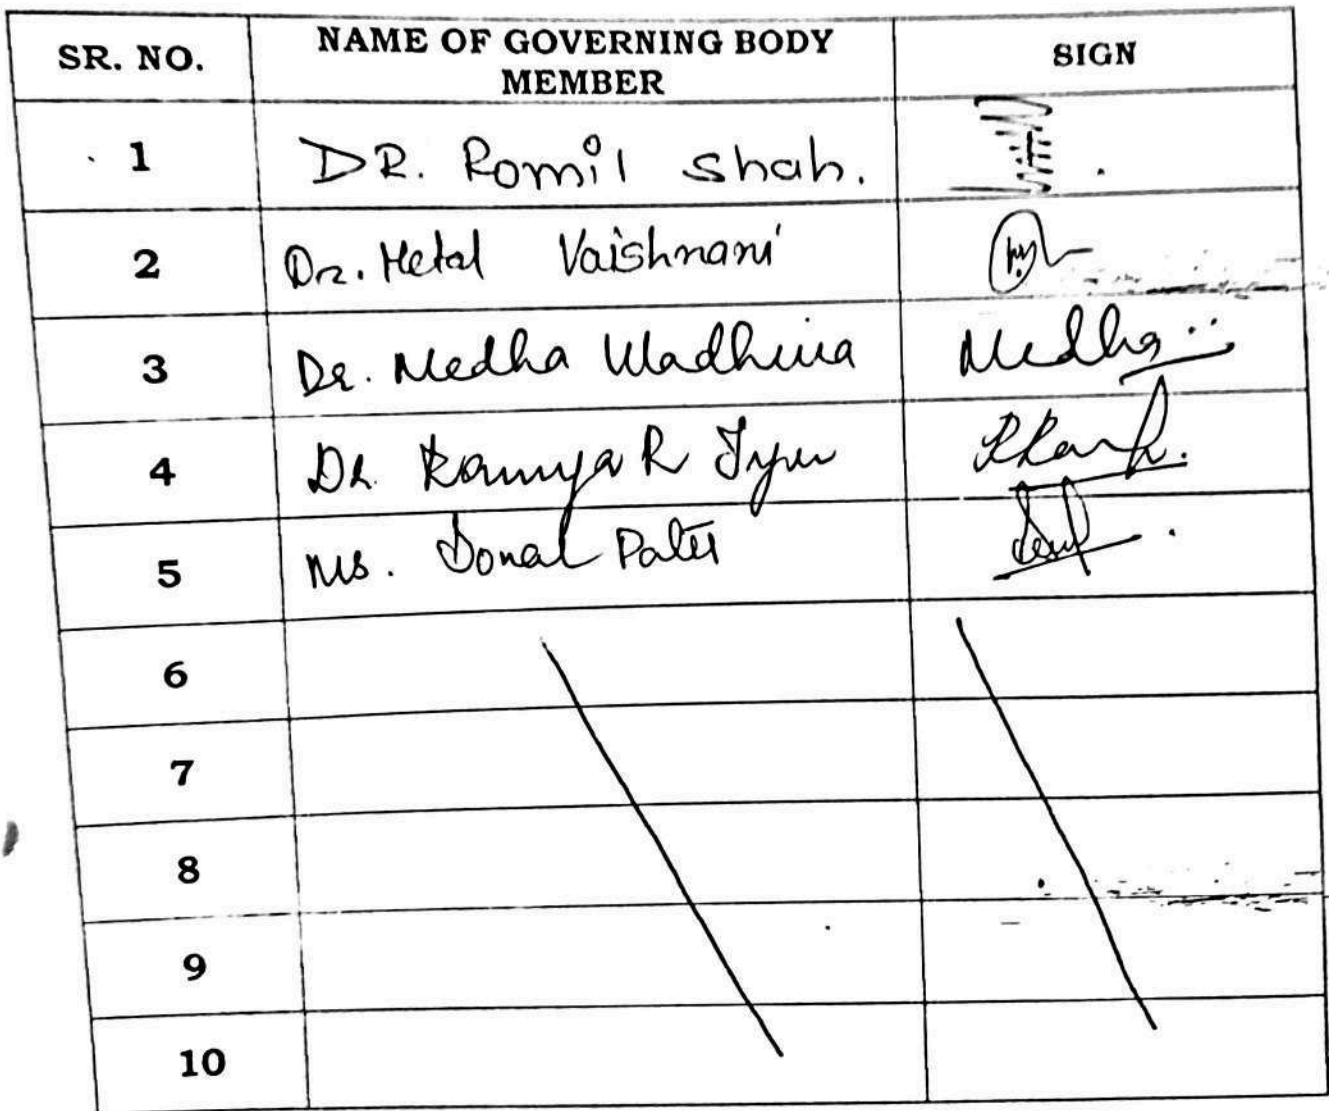 SR. NO. NAME OF GOVERNING BODY MEMBER SIGN
1 DR. Romil Shah.
2 Dr. Hetal Vaishnani
3 Dr. Medha Wadhwa Medha
4 Dr. Ramya R Iyer
5 Ms. Sonal Patel
6
7
8
9
10